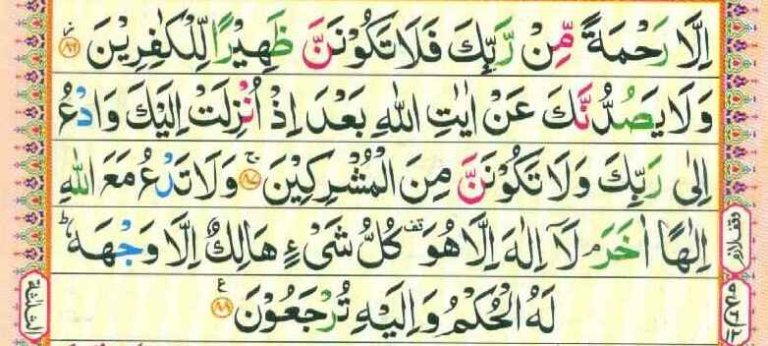 اِلَّا رَحْمَةً مِّنْ رَّبِّكَ فَلَا تَكُوْنَنَّ ظَهِيْرًا لِّلْكٰفِرِيْنَ ۟ۙ۸۶
وَلَا يَصُدُّنَّكَ عَنْ اٰيٰتِ اللّٰهِ بَعْدَ اِذْ اُنْزِلَتْ اِلَيْكَ وَادْعُ
اِلٰى رَبِّكَ وَلَا تَكُوْنَنَّ مِنَ الْمُشْرِكِيْنَ ۚ۸۷ وَلَا تَدْعُ مَعَ اللّٰهِ
اِلٰهًا اٰخَرَ ۘ لَاۤ اِلٰهَ اِلَّا هُوَ قف كُلُّ شَيْءٍ هَالِكٌ اِلَّا وَجْهَهٗ ؕ
لَهُ الْحُكْمُ وَاِلَيْهِ تُرْجَعُوْنَ ۸۸ ع
وقف لازم